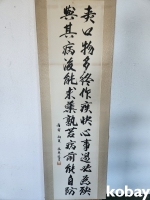 爽口物多終作疾快心事過必爲殃
與其病後能求藥孰若病前能自防
kobay